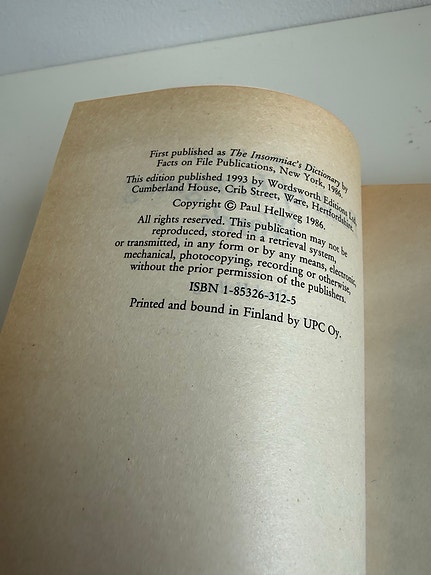 First published as The Insomniac's Dictionary by
Facts on File Publications, New York, 1986.
This edition published 1993 by Wordsworth Editions Ltd,
Cumberland House, Crib Street, Ware, Hertfordshire.
Copyright © Paul Hellweg 1986.
All rights reserved. This publication may not be
reproduced, stored in a retrieval system,
or transmitted, in any form or by any means, electronic,
mechanical, photocopying, recording or otherwise,
without the prior permission of the publishers.
ISBN 1-85326-312-5
Printed and bound in Finland by UPC Oy.